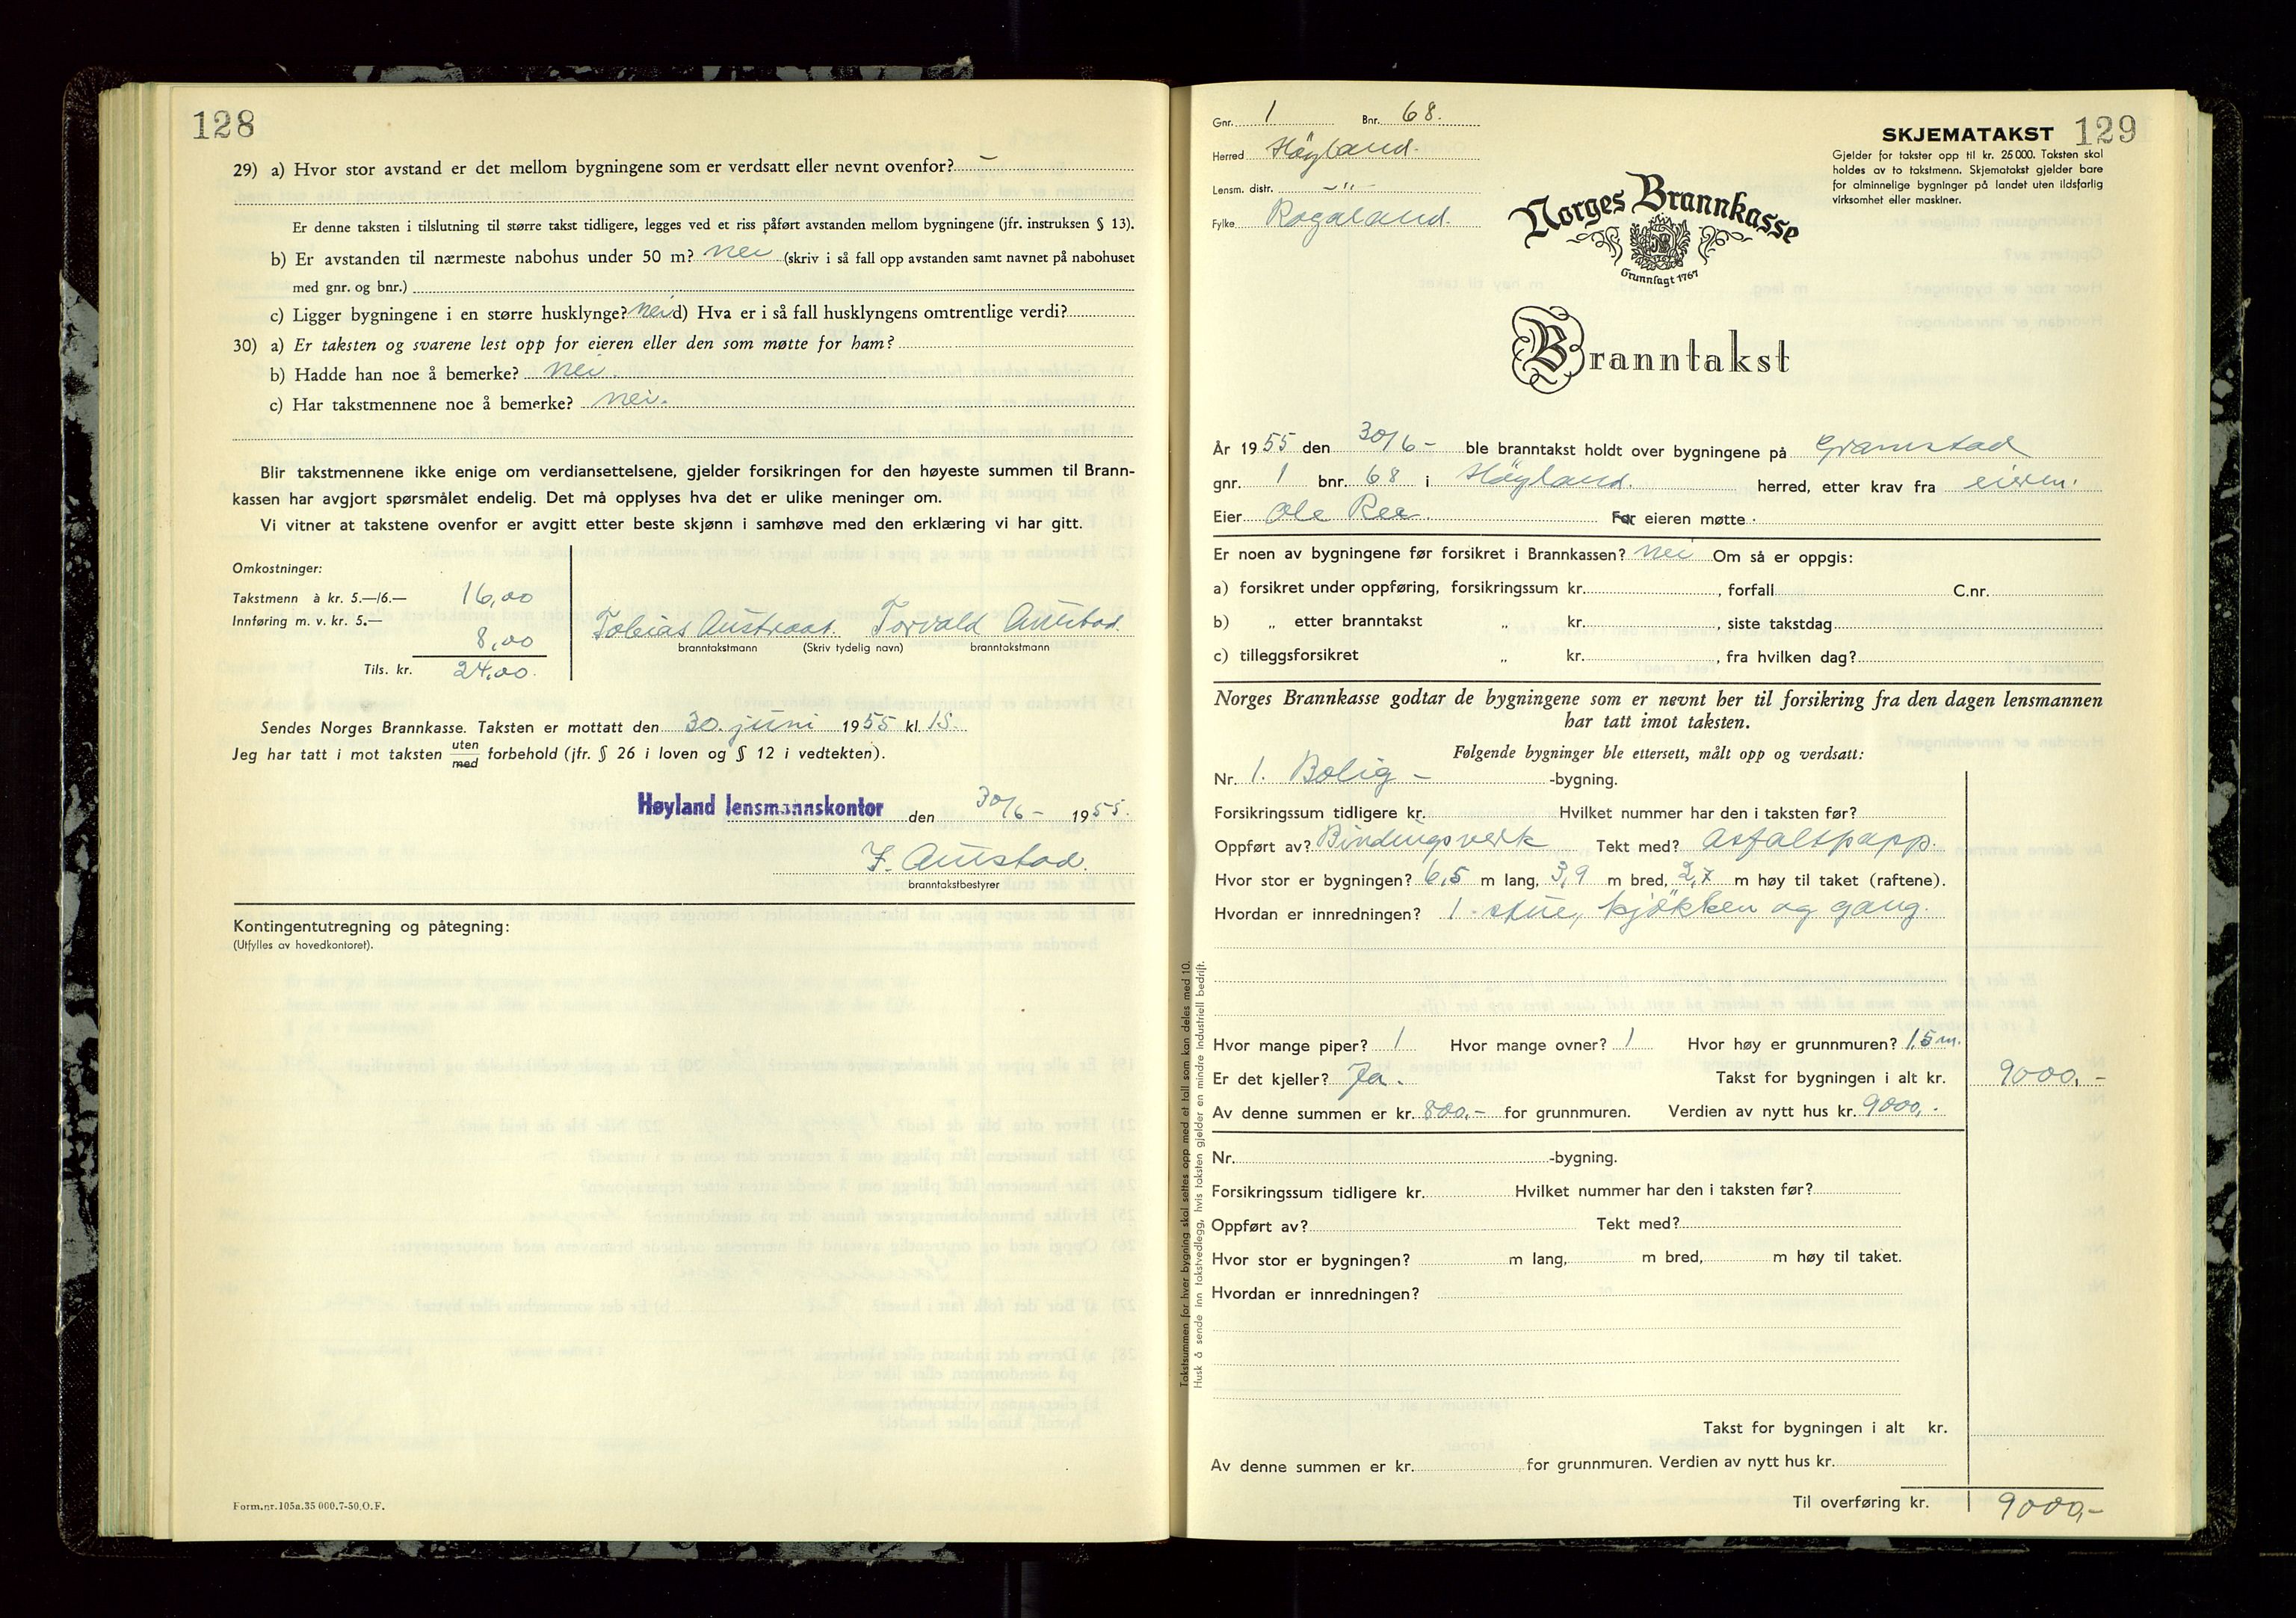 128
29) a) Hvor stor avstand er det mellom bygningene som er verdsatt eller nevnt ovenfor? –
Er denne taksten i tilslutning til større takst tidligere, legges ved et riss påført avstanden mellom bygningene (jfr. instruksen § 13).
b) Er avstanden til nærmeste nabohus under 50 m? nei (skriv i så fall opp avstanden samt navnet på nabohuset
med gnr. og bnr.)
c) Ligger bygningene i en større husklynge? nei d) Hva er i så fall husklyngens omtrentlige verdi?
30) a) Er taksten og svarene lest opp for eieren eller den som møtte for ham?
b) Hadde han noe å bemerke? nei.
c) Har takstmennene noe å bemerke? nei.
Blir takstmennene ikke enige om verdiansettelsene, gjelder forsikringen for den høyeste summen til Brann-
kassen har avgjort spørsmålet endelig. Det må opplyses hva det er ulike meninger om.
Vi vitner at takstene ovenfor er avgitt etter beste skjønn i samhøve med den erklæring vi har gitt.
Omkostninger:
Takstmenn à kr. 5.—/6.— 16,00
Innføring m. v. kr. 5.—
8,00
Tils. kr. 24,00.
Tobias Austraat. Torvald Austad.
branntakstmann (Skriv tydelig navn) branntakstmann
Sendes Norges Brannkasse. Taksten er mottatt den 30. juni 1955 kl. 15.
Jeg har tatt i mot taksten uten med forbehold (jfr. § 26 i loven og § 12 i vedtekten).
Høyland lensmannskontor den 30/6 – 1955.
T. Austad.
branntakstbestyrer
Kontingentutregning og påtegning:
(Utfylles av hovedkontoret).
Form.nr.105a.35 000.7-50.O.F.
Gnr. 1 Bnr. 68.
Herred Höyland.
Lensm. distr. –"–
Fylke Rogaland.
SKJEMATAKST 129
Gjelder for takster opp til kr. 25 000. Taksten skal
holdes av to takstmenn. Skjematakst gjelder bare
for alminnelige bygninger på landet uten ildsfarlig
virksomhet eller maskiner.
Norges Brannkasse
Grunnlagt 1767
Branntakst
År 1955 den 30/6 – ble branntakst holdt over bygningene på Gramstad
gnr. 1 bnr. 68 i Höyland. herred, etter krav fra eieren.
Eier Ole Ree. For eieren møtte
Er noen av bygningene før forsikret i Brannkassen? nei Om så er oppgis:
a) forsikret under oppføring, forsikringssum kr. , forfall C.nr.
b) „ etter branntakst „ kr. , siste takstdag
c) tilleggsforsikret „ kr. , fra hvilken dag?
Norges Brannkasse godtar de bygningene som er nevnt her til forsikring fra den dagen lensmannen
har tatt imot taksten.
Følgende bygninger ble ettersett, målt opp og verdsatt:
Nr. 1. Bolig – -bygning.
Forsikringssum tidligere kr. Hvilket nummer har den i taksten før?
Oppført av? Bindingsverk Tekt med? Asfaltpapp.
Hvor stor er bygningen? 6,5 m lang, 3,9 m bred, 2,7 m høy til taket (raftene).
Hvordan er innredningen? 1. stue, kjökken og gang.
Hvor mange piper? 1 Hvor mange ovner? 1 Hvor høy er grunnmuren? 1.5 m.
Er det kjeller? Ja. Takst for bygningen i alt kr. 9000,–
Av denne summen er kr. 800,– for grunnmuren. Verdien av nytt hus kr. 9000,–
Nr. -bygning.
Forsikringssum tidligere kr. Hvilket nummer har den i taksten før?
Oppført av? Tekt med?
Hvor stor er bygningen? m lang, m bred, m høy til taket.
Hvordan er innredningen?
Takst for bygningen i alt kr.
Av denne summen er kr. for grunnmuren. Verdien av nytt hus kr.
Til overføring kr. 9000,–
Takstsummen for hver bygning skal settes opp med et tall som kan deles med 10.
Husk å sende inn takstvedlegg, hvis taksten gjelder en mindre industriell bedrift.